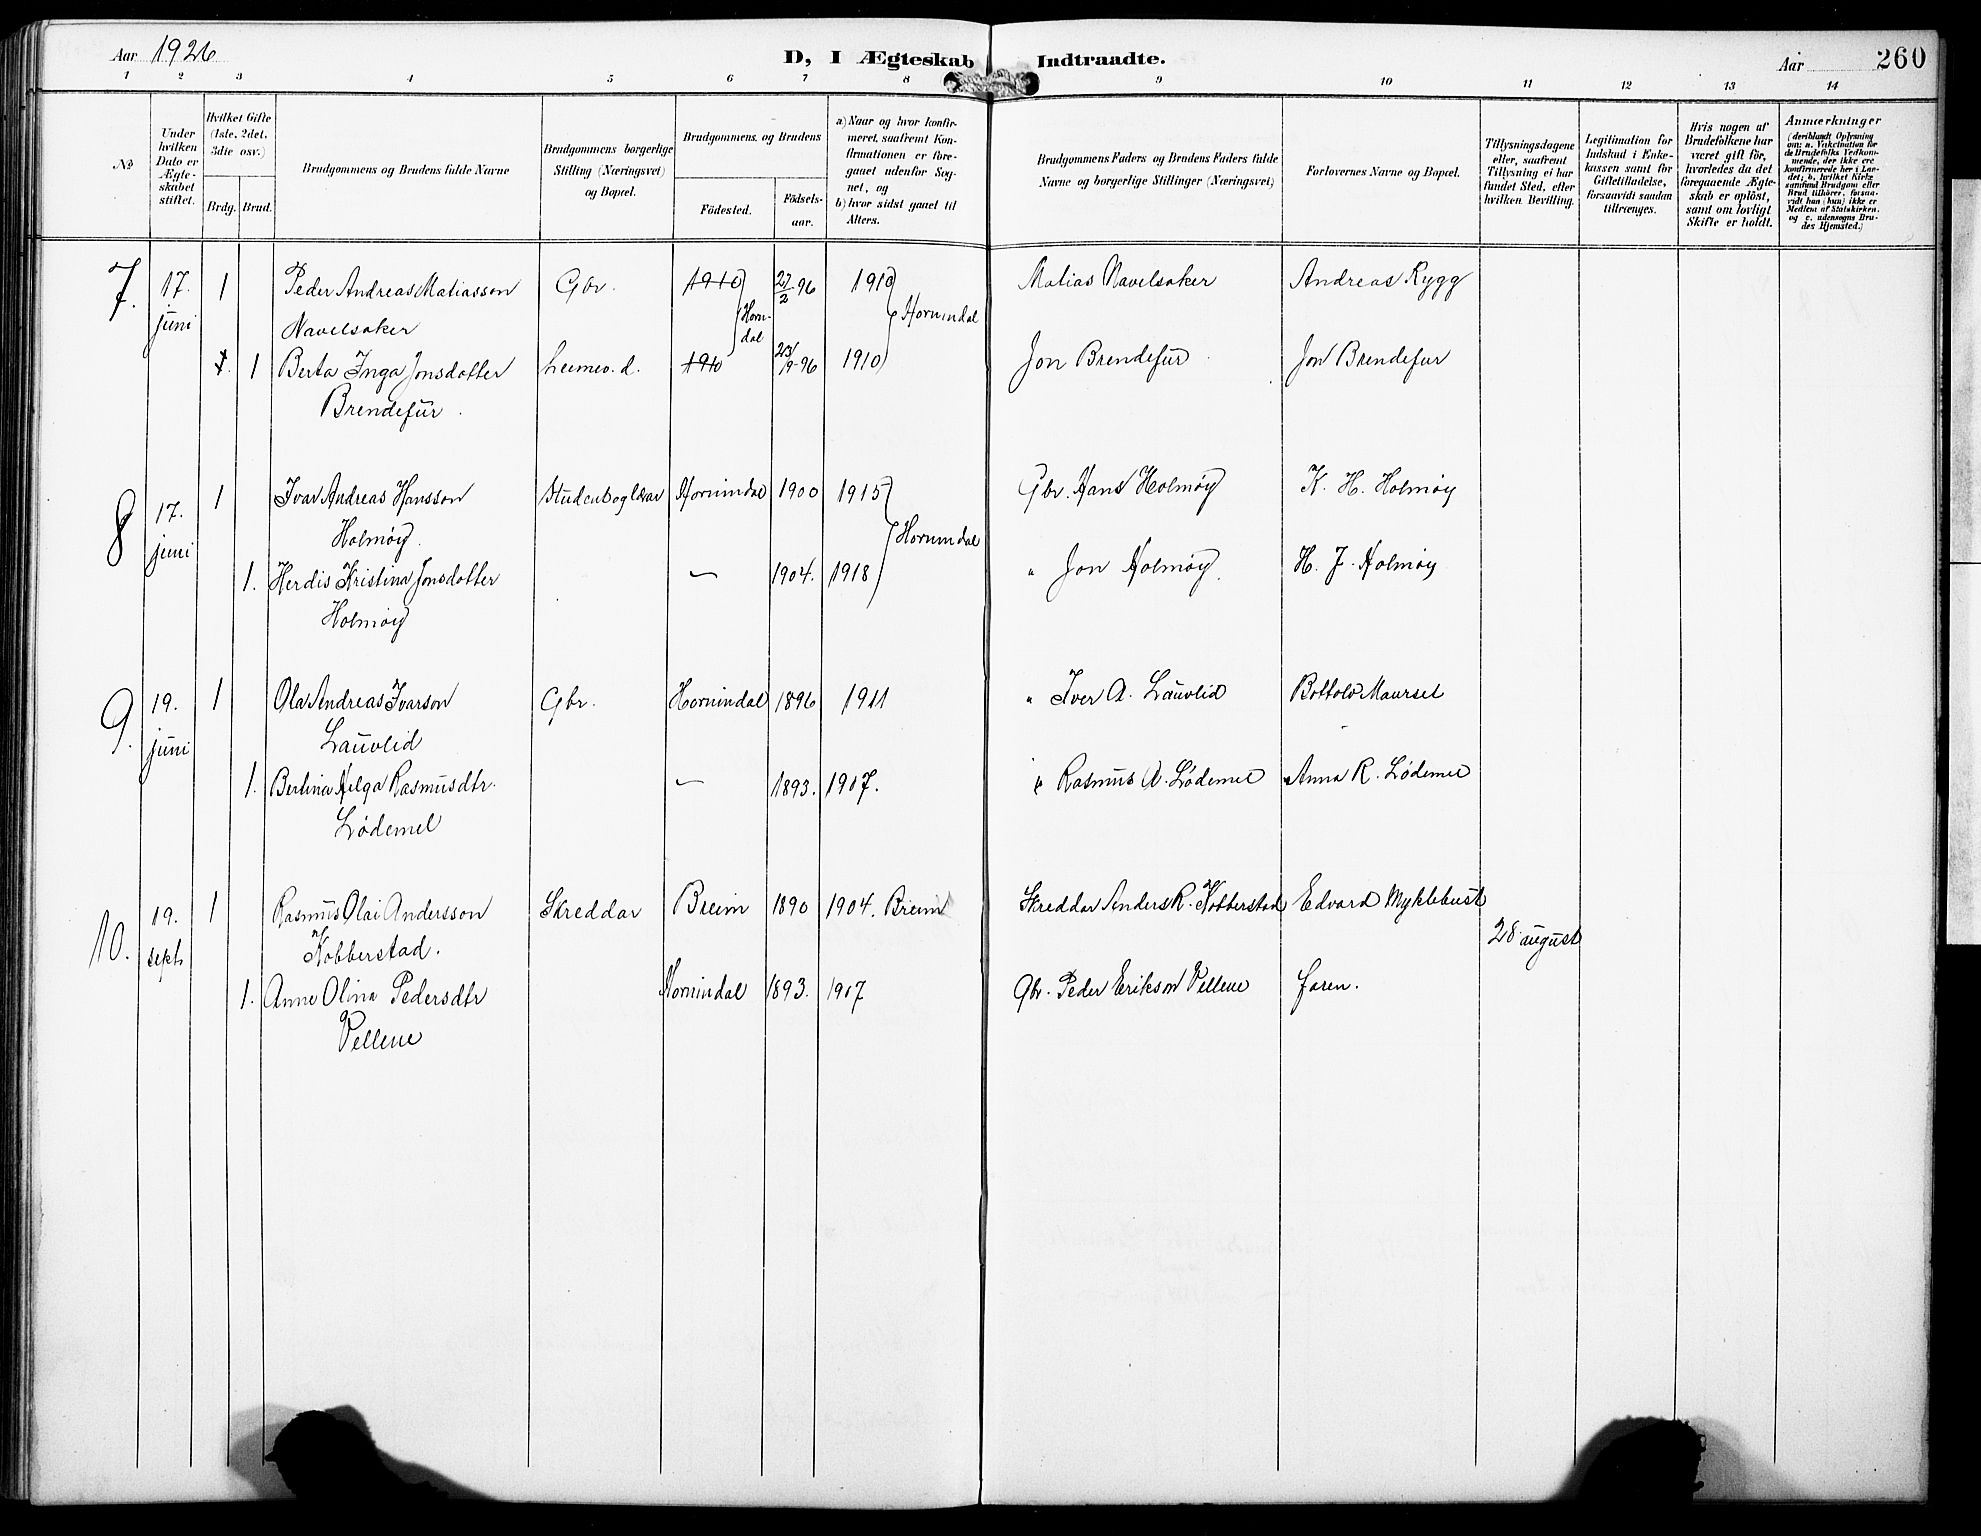 Aar 1926
D, I Ægteskab Indtraadte.
Aar 260
1 2 3 4 5 6 7 8 9 10 11 12 13 14
No
Under hvilken Dato er Ægteskabet stiftet.
Hvilket Gifte (1ste, 2det, 3die osv.)
Brdg. Brud.
Brudgommens og Brudens fulde Navne
Brudgommens borgerlige Stilling (Næringsvei) og Bopæl.
Brudgommens og Brudens
Fødested. Fødselsaar.
a) Naar og hvor konfirmeret, saafremt Konfirmationen er foregaaet udenfor Sognet, og
b) hvor sidst gaaet til Alters.
Brudgommens Faders og Brudens Faders fulde Navne og borgerlige Stillinger (Næringsvei)
Forlovernes Navne og Bopæl.
Tillysningsdagene eller, saafremt Tillysning ei har fundet Sted, efter hvilken Bevilling.
Legitimation for Indskud i Enkekassen samt for Giftetilladelse, forsaavidt saadan tiltrænges.
Hvis nogen af Brudefolkene har været gift før, hvorledes da det foregaaende Ægteskab er opløst, samt om lovligt Skifte er holdt.
Anmærkninger
(deriblandt Oplysning om: a. Vakcination for de Brudefolks Vedkommende, der ikke ere konfirmerede her i Landet; b. hvilket Kirkesamfund Brudgom eller Brud tilhører, forsaavidt han (hun) ikke er Medlem af Statskirken, og c. udensogns Brudes Hjemsted.)
7. 17. 1 Peder Andreas Matiasson Gbr. 1910 27/2 96 1910 Matias Navelsaker Andreas Rygg
juni Navelsaker Horndal Hornindal
1. 1 Berta Inga Jonsdotter 1910 1910 Jon Brendefur Jon Brendefur
Brendefur
8 17. 1 Ivar Andreas Hansson Student og lærar Hornindal 1900 1915 Gbr. Hans Holmøy K. H. Holmøy
juni Holmøy. Hornindal
1. Herdis Kristina Jonsdotter — 1904. 1918 " Jon Holmøy H. J. Holmøy
Holmøy
9. 19. 1 Ola Andreas Ivarson Gbr. Hornindal 1896 1911 " Iver A. Lauvlid Bottolv Maurset
juni Lauvlid
1. Bertina Helga Rasmusdtr. — 1893. 1907. " Rasmus A. Lødemel Anna R. Lødemel
Lødemel
10. 19. 1 Rasmus Olai Andersson Skreddar Breim 1890 1904. Breim Skreddar Anders R. Kobberstad Edvard Myklebust
sept. Kobberstad. 28 august
1. Anne Olina Pedersdtr Hornindal 1893. 1907 Gbr. Peder Erikson Vellene faren.
Vellene